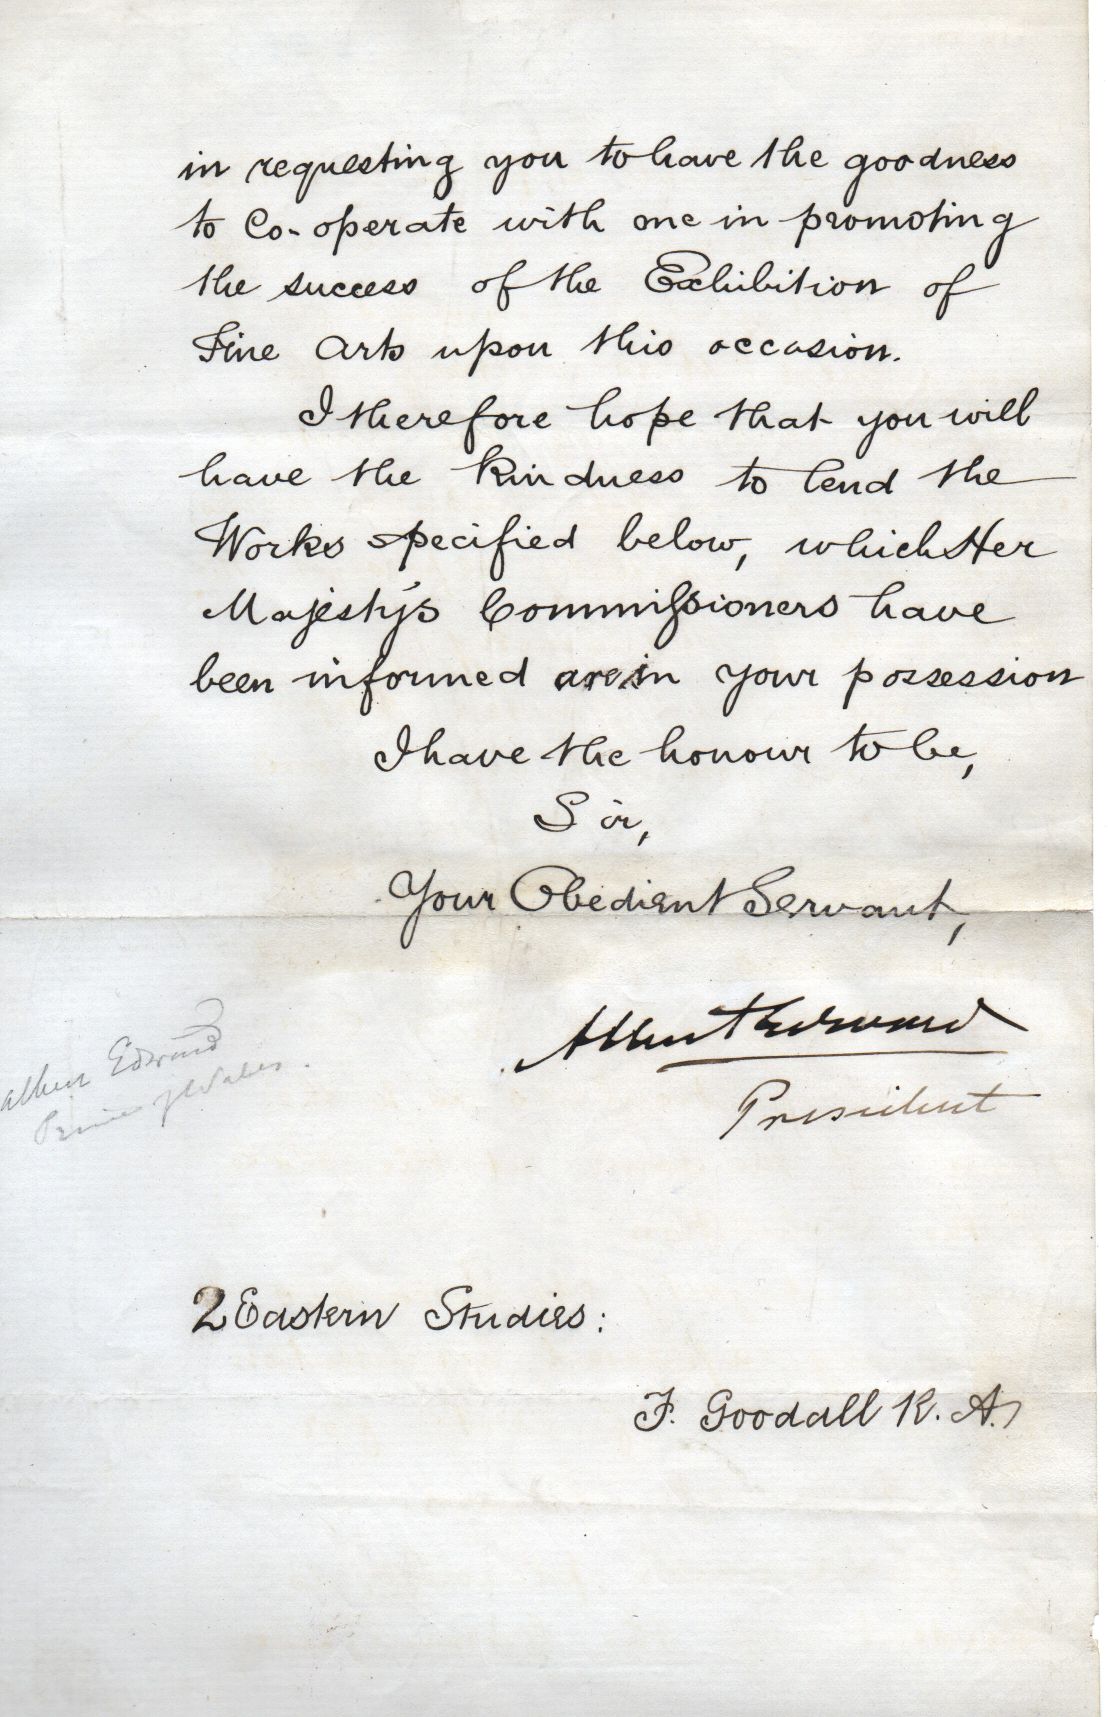 in requesting you to have the goodness
to Co-operate with me in promoting
the success of the Exhibition of
Fine Arts upon this occasion.
I therefore hope that you will
have the kindness to lend the
Works specified below, which Her
Majesty's Commissioners have
been informed are in your possession
I have the honour to be,
Sir,
Your Obedient Servant,
Albert Edward
President
Albert Edward
Prince of Wales.
2 Eastern Studies:
F. Goodall R.A.